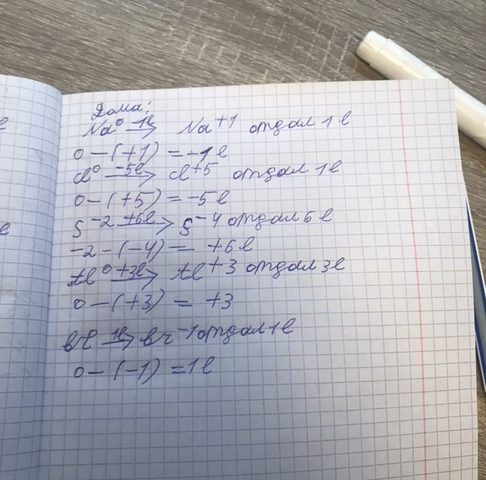 Дома:
Na⁰ -1e→ Na⁺¹ отдал 1e
0-(+1)=-1e
cl⁰ -5e→ cl⁺⁵ отдал 1e
0-(+5)=-5e
S⁻² +6e→ S⁻⁴ отдал 6e
-2-(-4)= +6e
Al⁰ +3e→ Al⁺³ отдал 3e
0-(+3)= +3
1e→ Br⁻¹ отдал 1e
0-(-1)=1e